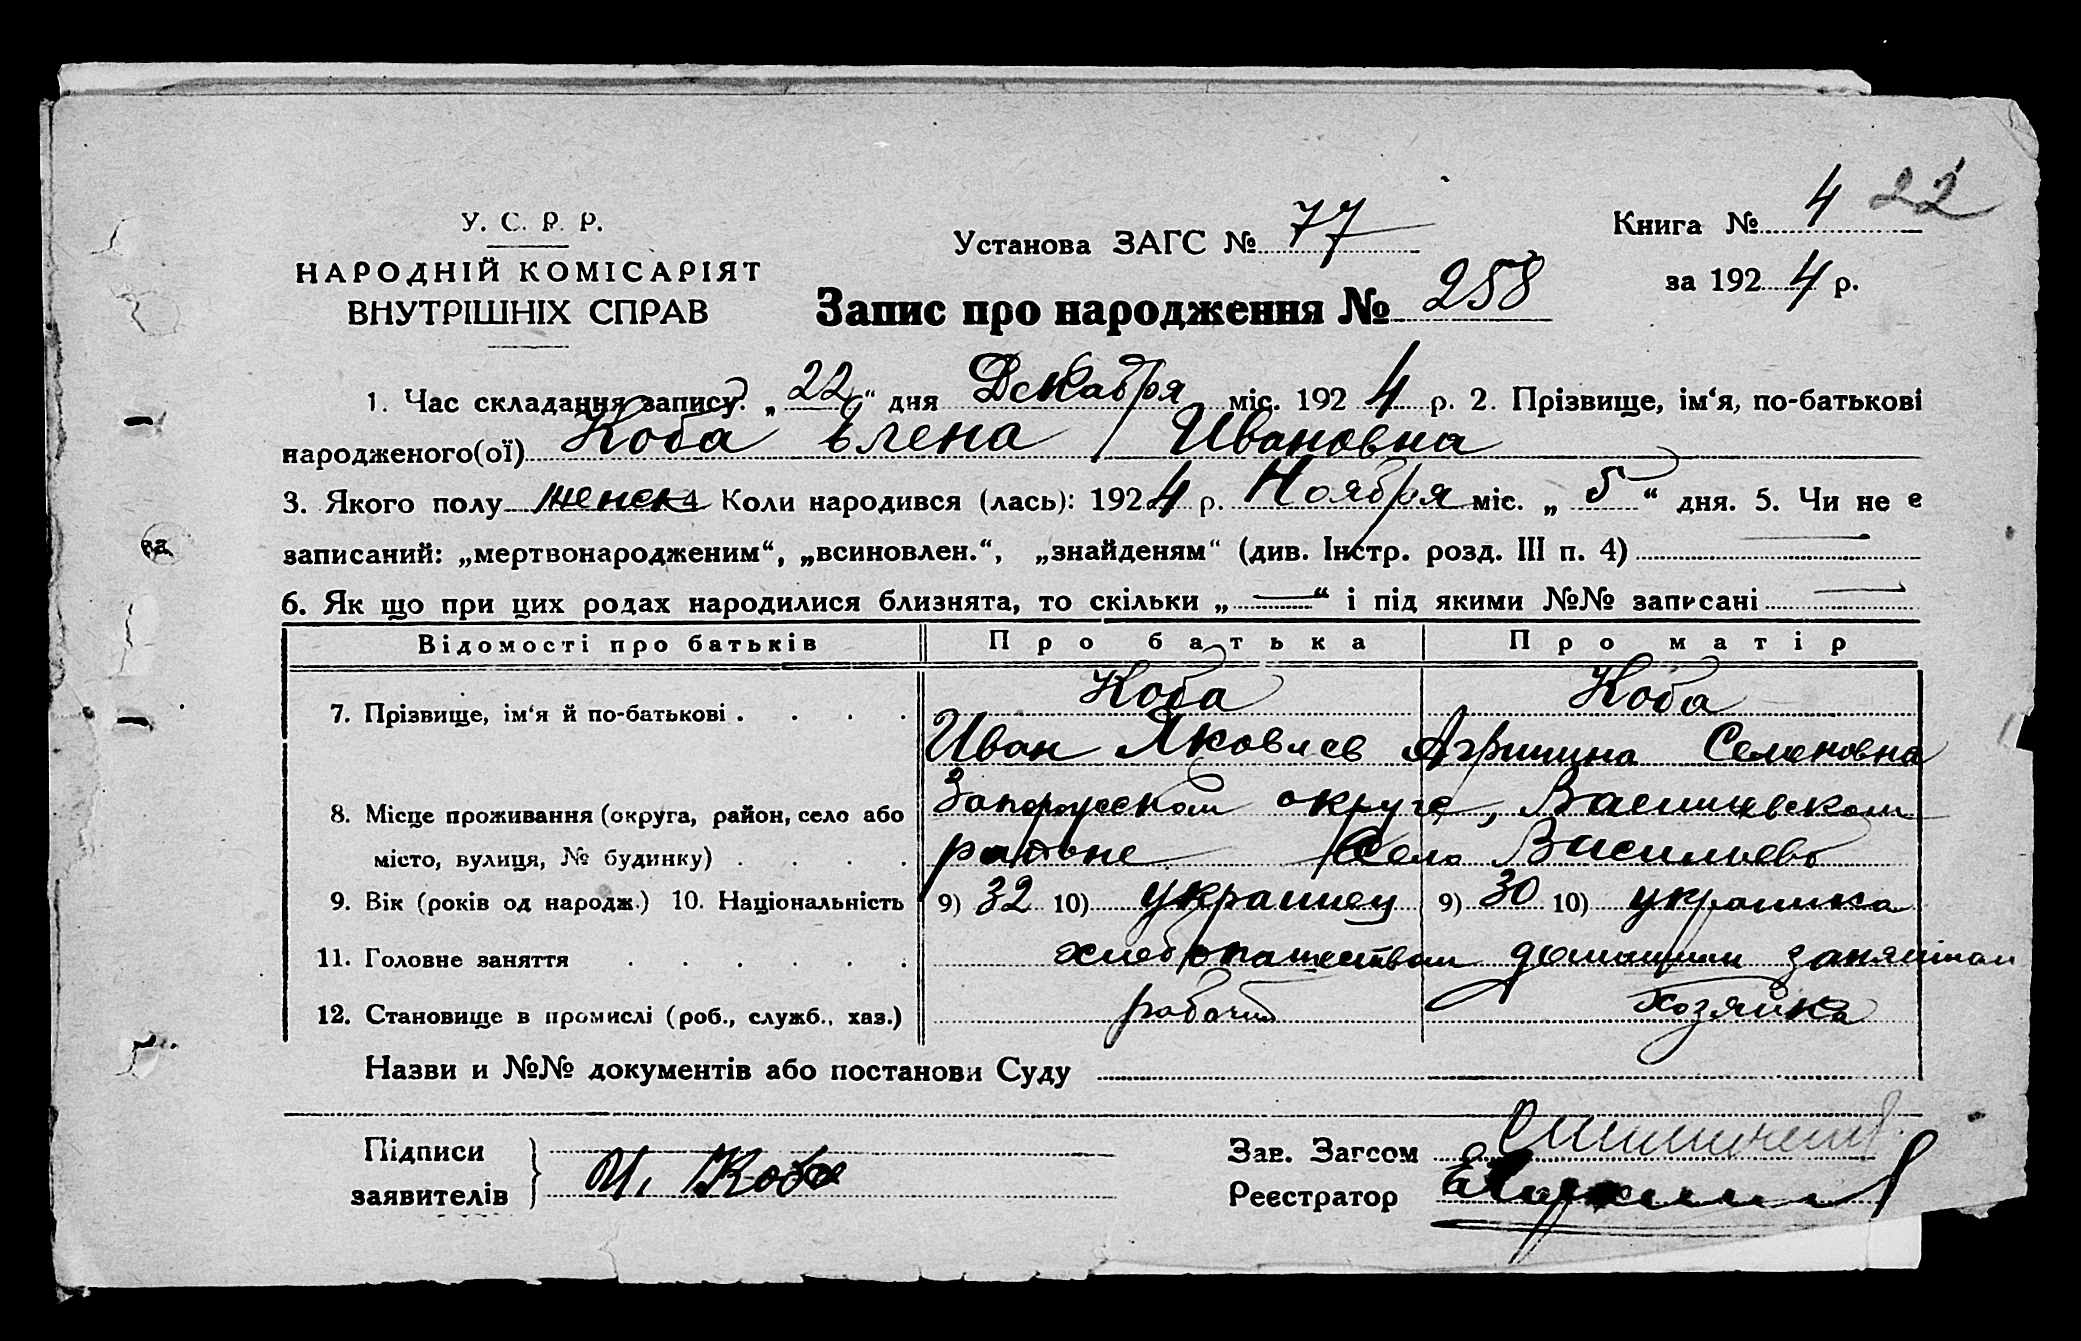 4 22
У. С. Р. Р.
Установа ЗАГС № 77
Книга № 4
НАРОДНІЙ КОМІСАРІЯТ
за 1924 р.
ВНУТРІШНІХ СПРАВ
Запис про народження № 258
1. Час складання запису. „22“ дня Декабря міс. 1924 р. 2. Прізвище, ім‘я, по-батькові
народженого(ої) Коба Елена Ивановна
3. Якого полу женск 4 Коли народився (лась): 1924 р. Ноября міс. „5“ дня. 5. Чи не е
записаний: „мертвонародженим“, „всиновлен.“, „знайденям“ (див. Інстр. розд. III п. 4) —
6. Як що при цих родах народилися близнята, то скільки „—“ і під якими №№ записані —
Відомості про батьків Про батька Про матір
7. Прізвище, ім‘я й по-батькові . . . . Коба Коба
Иван Яковлев Агрипина Семеновна
8. Місце проживання (округа, район, село або Запорожском округе, Васильевском
місто, вулиця, № будинку) . . . . районе село Васильево
9. Вік (років од народж.) 10. Національність 9) 32 10) украинец 9) 30 10) украинка
11. Головне заняття . . . . . . хлебопашеством домашним занятиом
12. Становище в промислі (роб., служб., хаз.) рабочий хозяйка
Назви и №№ документів або постанови Суду
Підписи
заявителів } И. Коба
Зав. Загсом
Реєстратор